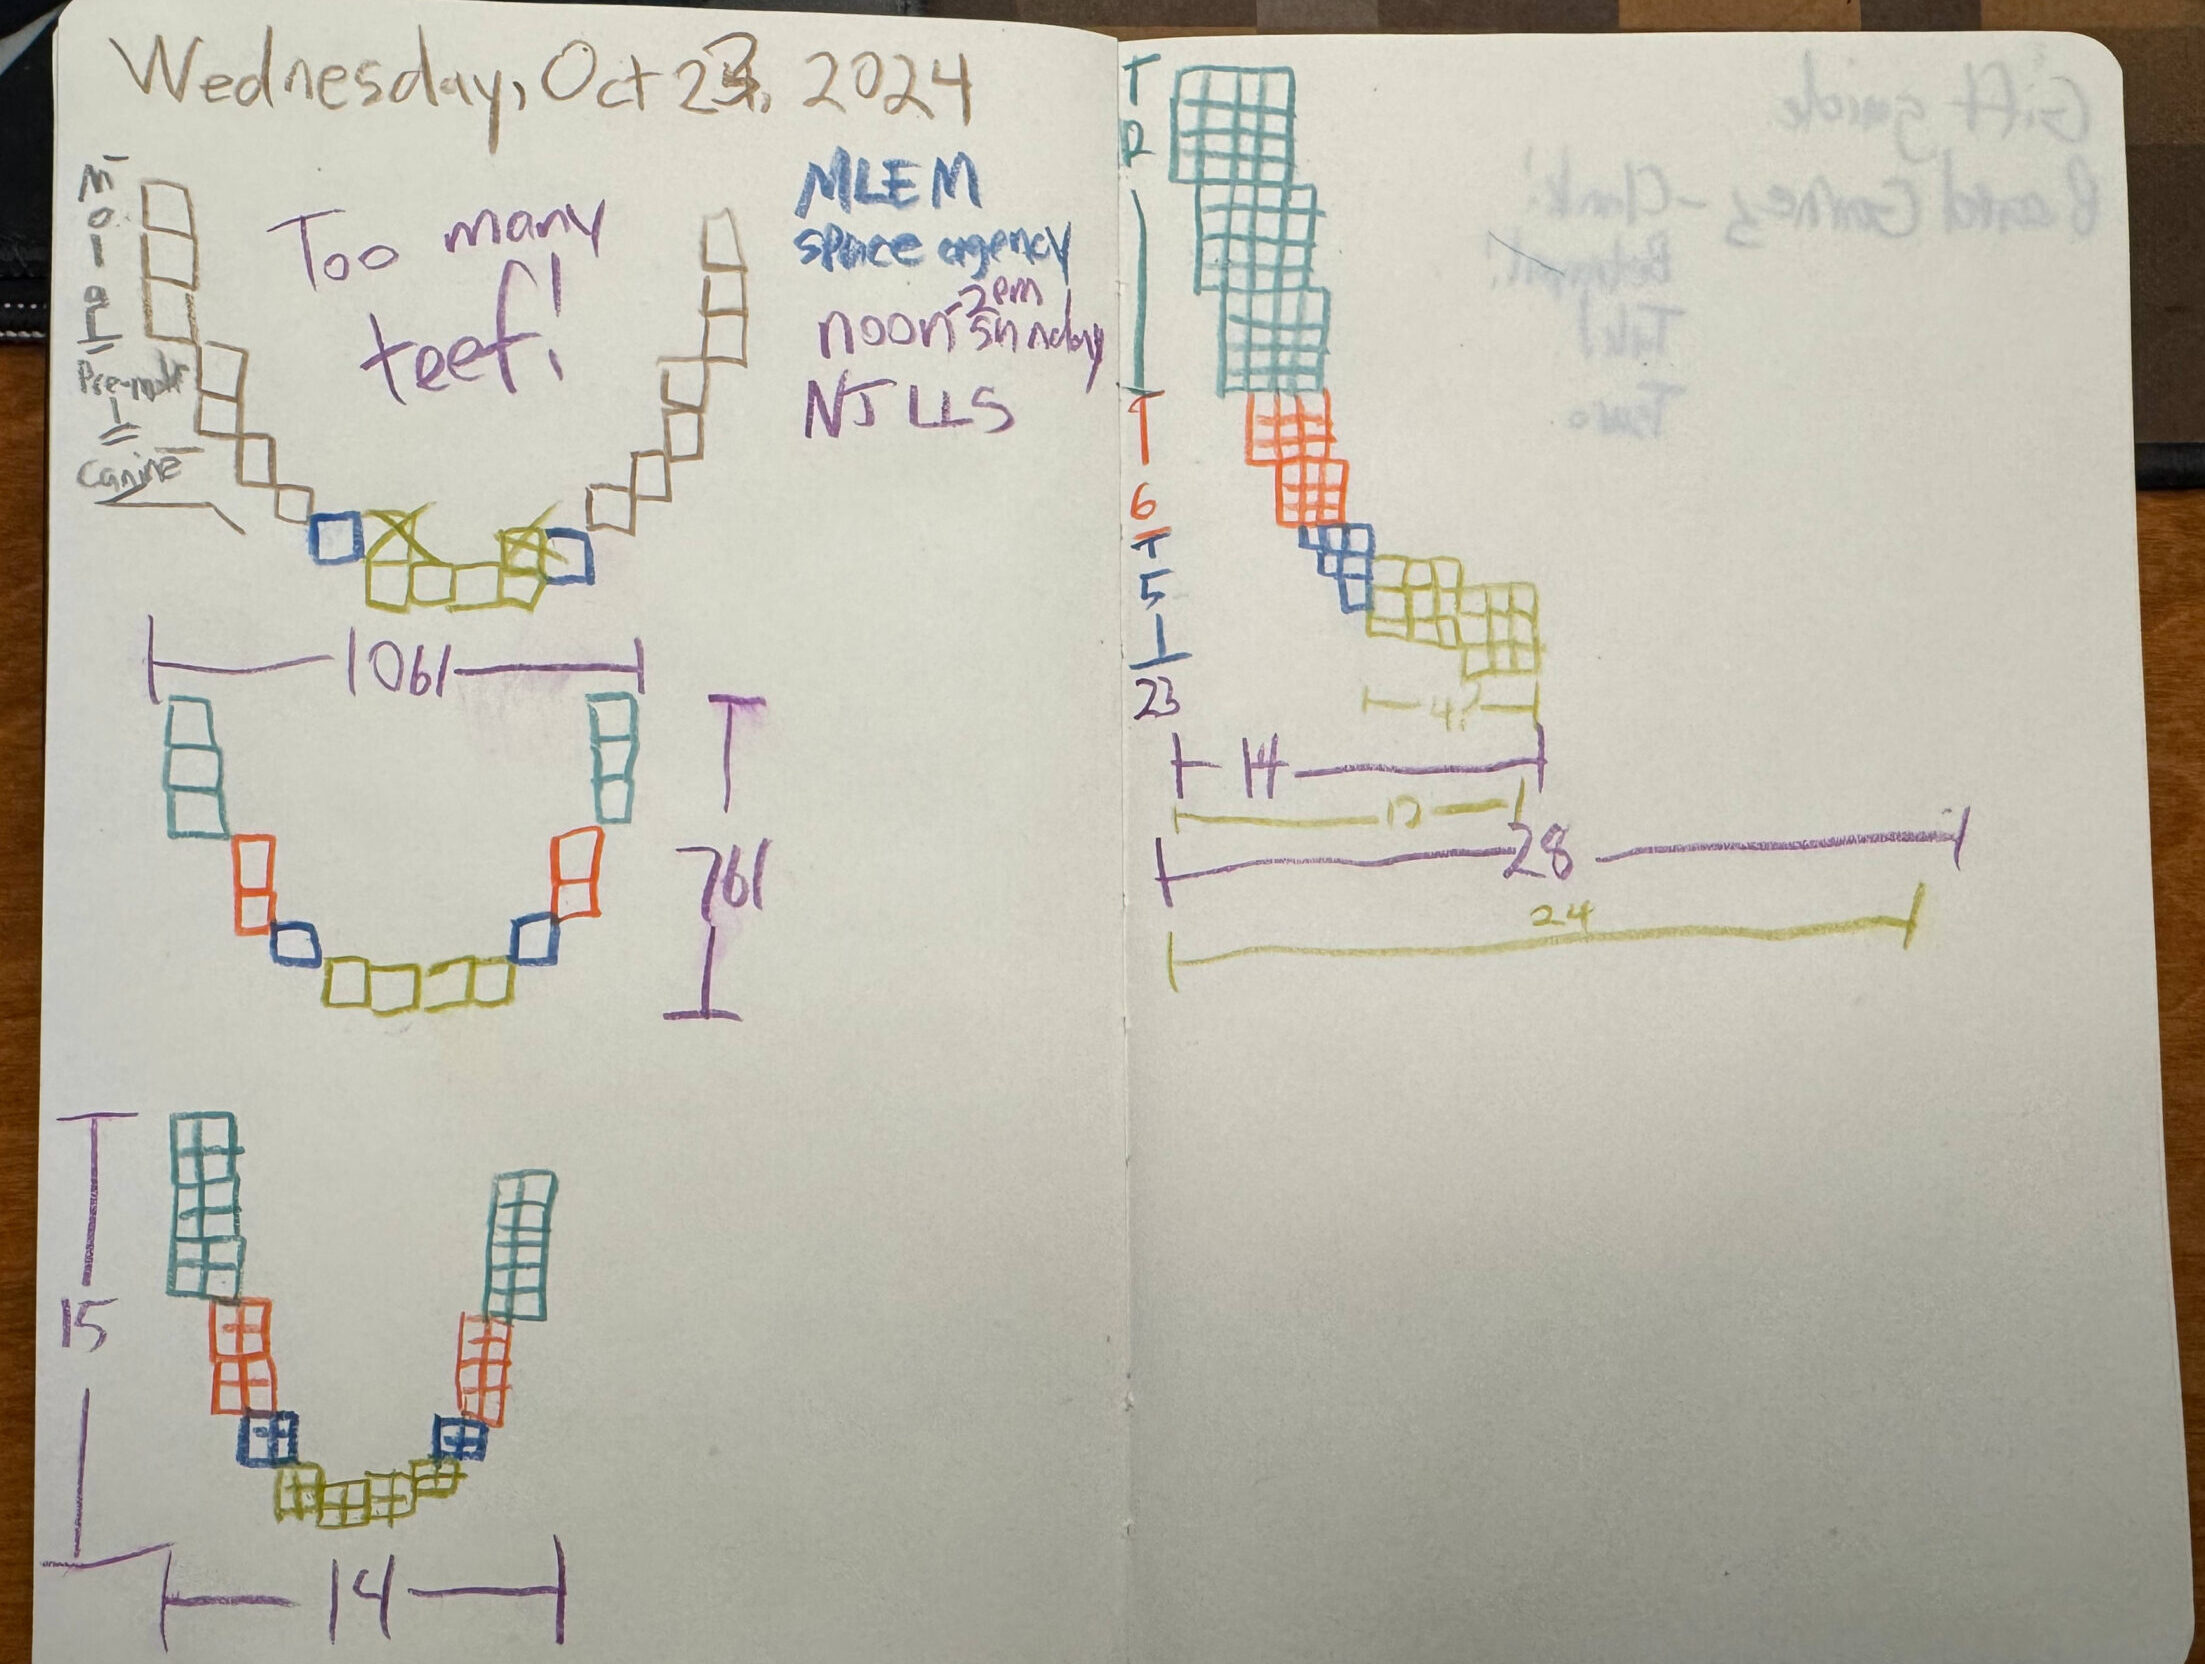 Wednesday, Oct 23, 2024
Molar
Pre-molar
Canine
Too many
teef!
MLEM
space agency
noon-2pm
Sunday
NJ LLS
1061
761
15
14
T
12
T
6
T
5
1
23
4?
14
12
28
24
Gift guide
Board Games - Clank!
Betrayal!